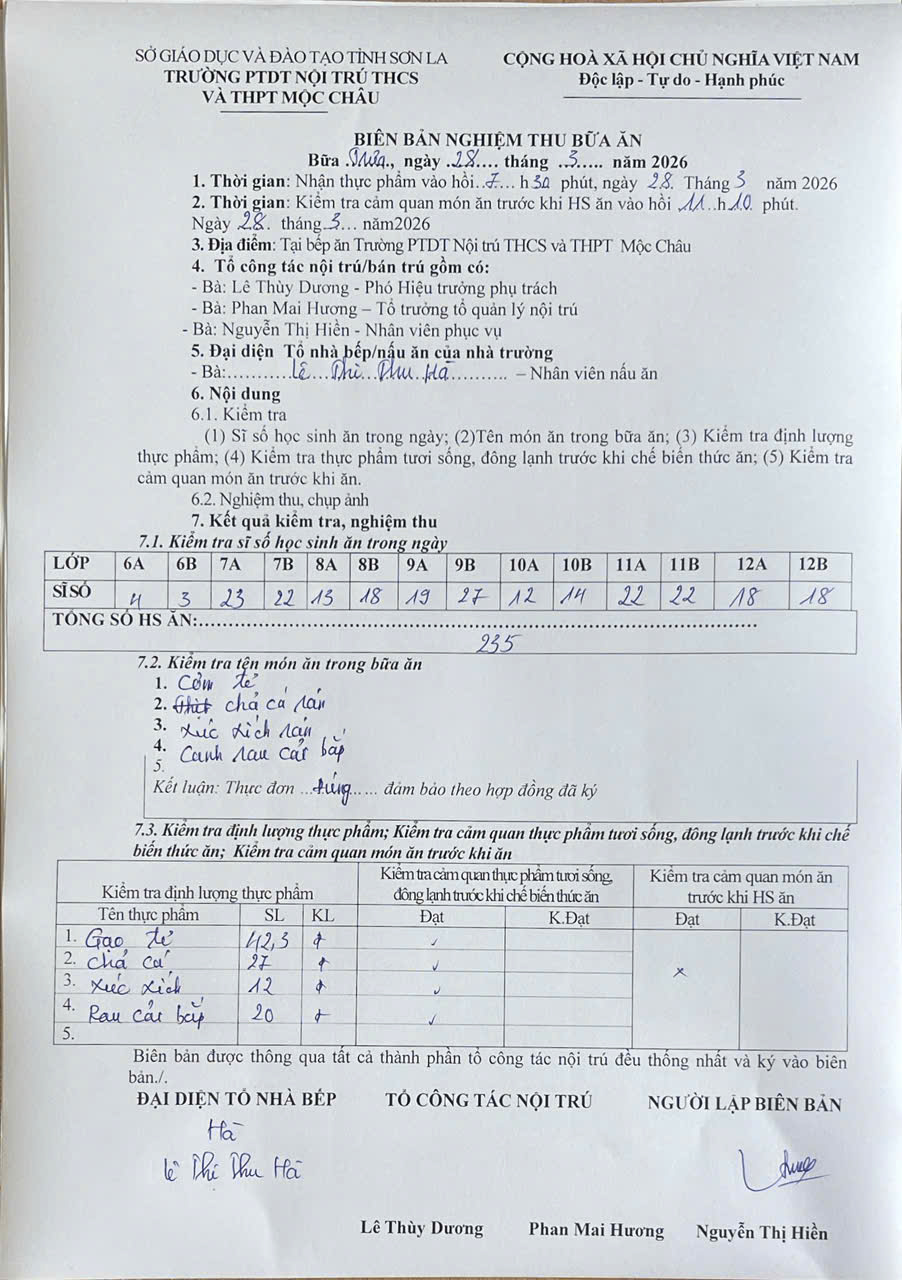 SỞ GIÁO DỤC VÀ ĐÀO TẠO TỈNH SƠN LA
TRƯỜNG PTDT NỘI TRÚ THCS
VÀ THPT MỘC CHÂU
CỘNG HOÀ XÃ HỘI CHỦ NGHĨA VIỆT NAM
Độc lập - Tự do - Hạnh phúc
BIÊN BẢN NGHIỆM THU BỮA ĂN
Bữa .Trưa., ngày .28.... tháng ..3..... năm 2026
1. Thời gian: Nhận thực phẩm vào hồi..7... h 30 phút, ngày 28. Tháng 3 năm 2026
2. Thời gian: Kiểm tra cảm quan món ăn trước khi HS ăn vào hồi 11..h10. phút.
Ngày 28. tháng.3... năm2026
3. Địa điểm: Tại bếp ăn Trường PTDT Nội trú THCS và THPT Mộc Châu
4. Tổ công tác nội trú/bán trú gồm có:
- Bà: Lê Thùy Dương - Phó Hiệu trưởng phụ trách
- Bà: Phan Mai Hương – Tổ trưởng tổ quản lý nội trú
- Bà: Nguyễn Thị Hiền - Nhân viên phục vụ
5. Đại diện Tổ nhà bếp/nấu ăn của nhà trường
- Bà:...........Lê...Thị...Thu..Hà.......... – Nhân viên nấu ăn
6. Nội dung
6.1. Kiểm tra
(1) Sĩ số học sinh ăn trong ngày; (2)Tên món ăn trong bữa ăn; (3) Kiểm tra định lượng
thực phẩm; (4) Kiểm tra thực phẩm tươi sống, đông lạnh trước khi chế biến thức ăn; (5) Kiểm tra
cảm quan món ăn trước khi ăn.
6.2. Nghiệm thu, chụp ảnh
7. Kết quả kiểm tra, nghiệm thu
7.1. Kiểm tra sĩ số học sinh ăn trong ngày
LỚP 6A 6B 7A 7B 8A 8B 9A 9B 10A 10B 11A 11B 12A 12B
SĨ SỐ 4 3 23 22 13 18 19 27 12 14 22 22 18 18
TỔNG SỐ HS ĂN:...............................................................................
235
7.2. Kiểm tra tên món ăn trong bữa ăn
1. Cơm tẻ
2. Thịt chả cá rán
3. Xúc xích rán
4. Canh rau cải bắp
5.
Kết luận: Thực đơn ...đúng...... đảm bảo theo hợp đồng đã ký
7.3. Kiểm tra định lượng thực phẩm; Kiểm tra cảm quan thực phẩm tươi sống, đông lạnh trước khi chế
biến thức ăn; Kiểm tra cảm quan món ăn trước khi ăn
Kiểm tra định lượng thực phẩm
Kiểm tra cảm quan thực phẩm tươi sống,
đông lạnh trước khi chế biến thức ăn
Kiểm tra cảm quan món ăn
trước khi HS ăn
Tên thực phẩm SL KL Đạt K.Đạt Đạt K.Đạt
1. Gạo tẻ 42,3 ✓
2. Chả cá 27 ✓ x
3. Xúc xích 12 ✓
4. Rau cải bắp 20 ✓
5.
Biên bản được thông qua tất cả thành phần tổ công tác nội trú đều thống nhất và ký vào biên
bản./.
ĐẠI DIỆN TỔ NHÀ BẾP TỔ CÔNG TÁC NỘI TRÚ NGƯỜI LẬP BIÊN BẢN
Hà
Lê Thị Thu Hà
Lê Thùy Dương Phan Mai Hương Nguyễn Thị Hiền